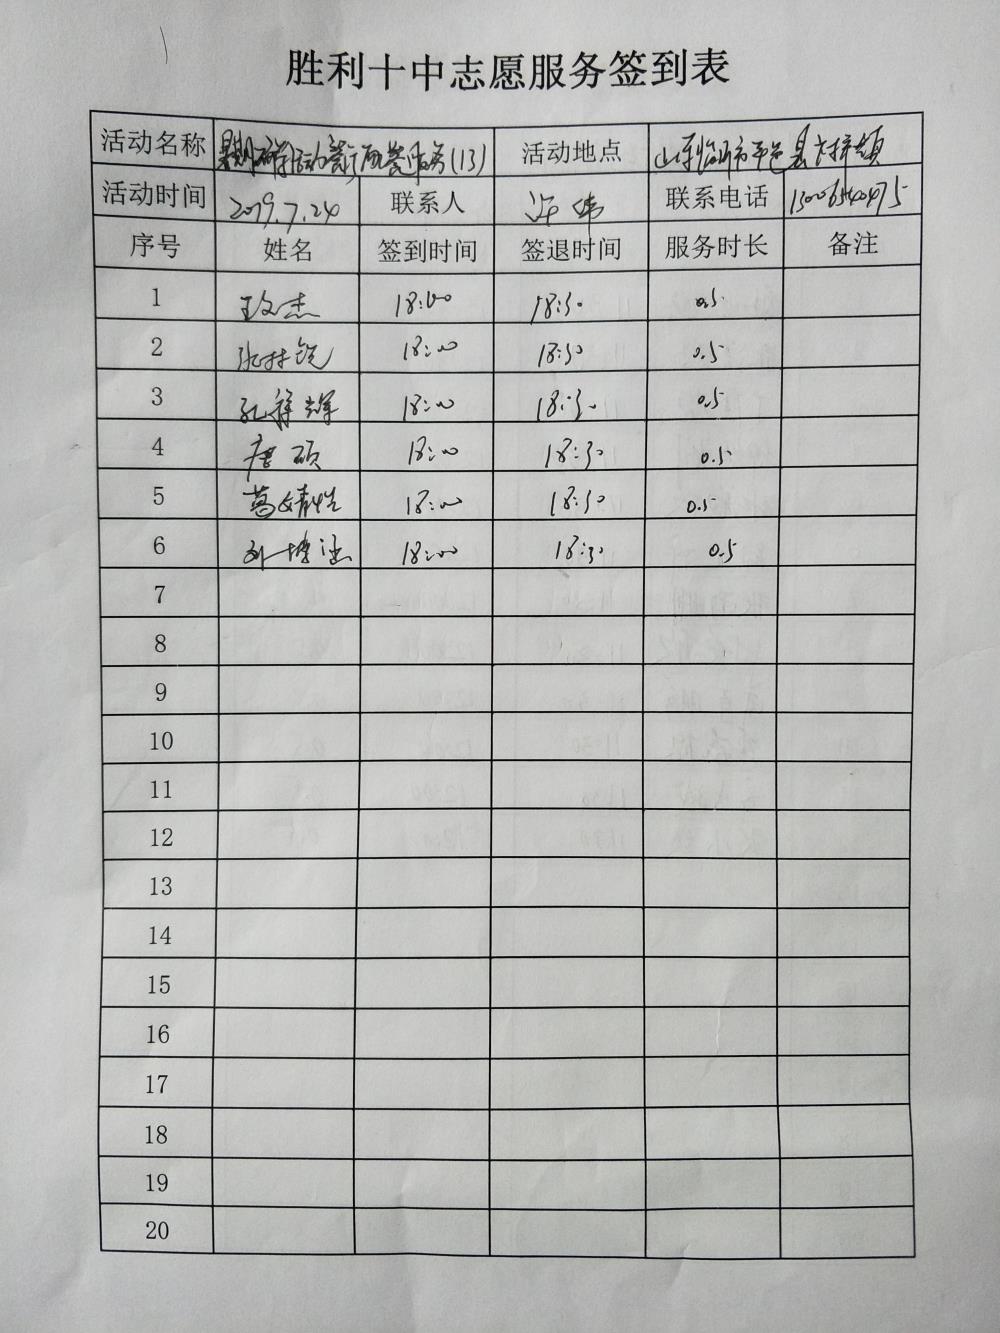 胜利十中志愿服务签到表
活动名称 暑期研学活动餐厅用餐服务(13) 活动地点 山东临沂市平邑县
活动时间 2019.7.24 联系人 许伟 联系电话 13006540475
序号 姓名 签到时间 签退时间 服务时长 备注
1 王文杰 18:00 18:30 0.5
2 张林锐 18:00 18:30 0.5
3 孔祥辉 18:00 18:30 0.5
4 唐硕 18:00 18:30 0.5
5 葛婧怡 18:00 18:30 0.5
6 刘博 18:00 18:30 0.5
7
8
9
10
11
12
13
14
15
16
17
18
19
20